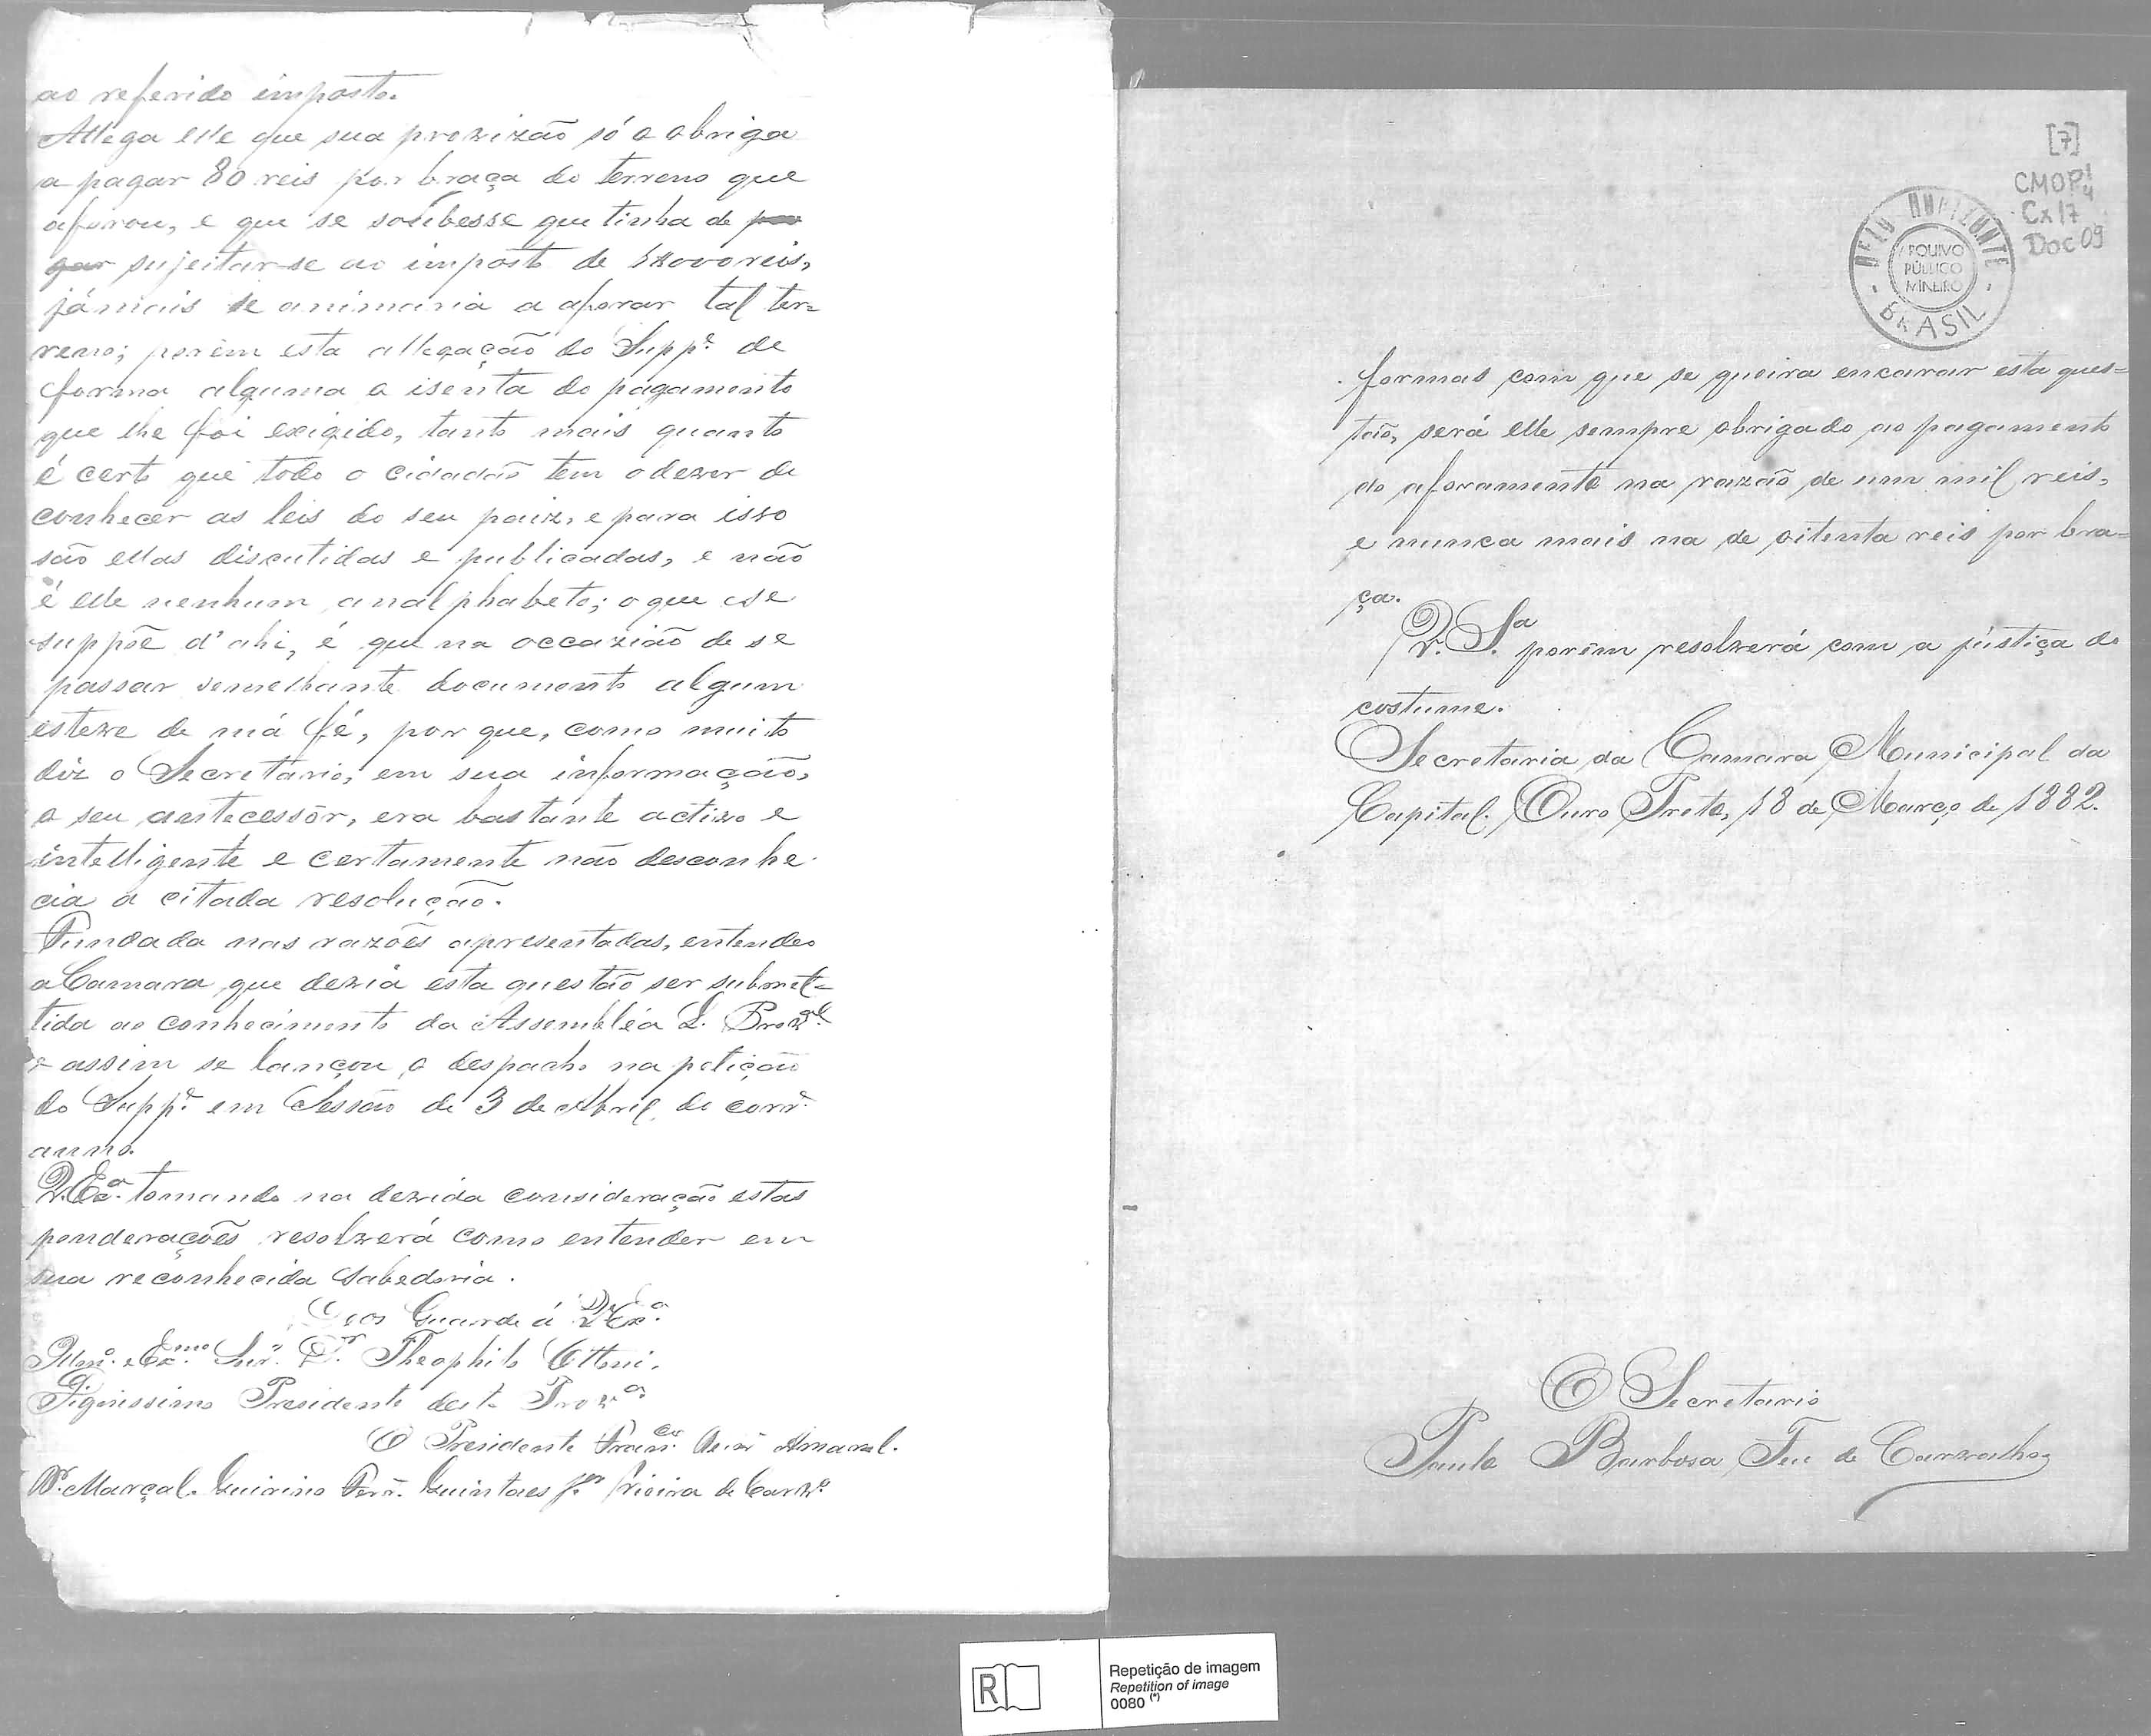 ao referido imposto.
Allega elle que sua provizão só o obriga
a pagar 80 reis por braça do terreno que
aforou, e que se soubesse que tinha de pa
gar sujeitar-se ao imposto de 1$000 reis,
jámais se animaria a aforar tal ter=
reno; porém esta allegação do Supp.e de
forma alguma o isenta do pagamento
que lhe foi exigido, tanto mais quanto
é certo que todo o cidadão tem o dever de
conhecer as leis do seu paiz, e para isso
são ellas discutidas e publicadas, e não
é elle nenhum analphabeto; o que se
suppõe d'ahi, é que na occazião de se
passar semelhante documento algum
esteve de má fé, por que, como muito
diz o Secretario, em sua informação,
o seu antecessôr, era bastante activo e
intelligente e certamente não desconhe
cia a citada resolução.
Fundada nas razões apresentadas, entendeo
a Camara que devia esta questão ser submet=
tida ao conhecimento da Assembléa L. Prov.al
e assim se lançou o despacho na petição
do Supp.e em Sessão de 3 de Abril do corr.e
anno.
V. Ex.a tomando na devida consideração estas
ponderações resolverá como entender em
sua reconhecida sabedoria.
Deos Guarde á V. Ex.a
Illm.o e Ex.mo Snr. D.r Theophilo Ottoni.
Digníssimo Presidente desta Prov.a
O Presidente Fran.co Amaral.
Marçal. Quirino Ferr. Quintaes J.or Vieira de Carv.o
[7]
CMOP 1/4
Cx 17
Doc 09
BELO HORIZONTE
ARQUIVO
PÚBLICO
MINEIRO
BRASIL
formas com que se queira encarar esta ques=
tão, será elle sempre obrigado ao pagamento
do aforamento na razão de um mil reis,
e nunca mais na de oitenta reis por bra=
ça.
V. S.a porém resolverá com a justiça do
costume.
Secretaria da Camara Municipal da
Capital. Ouro Preto, 18 de Março de 1882.
O Secretario
Paulo Barbosa Feu de Carvalho
R
Repetição de imagem
Repetition of image
0080 (*)